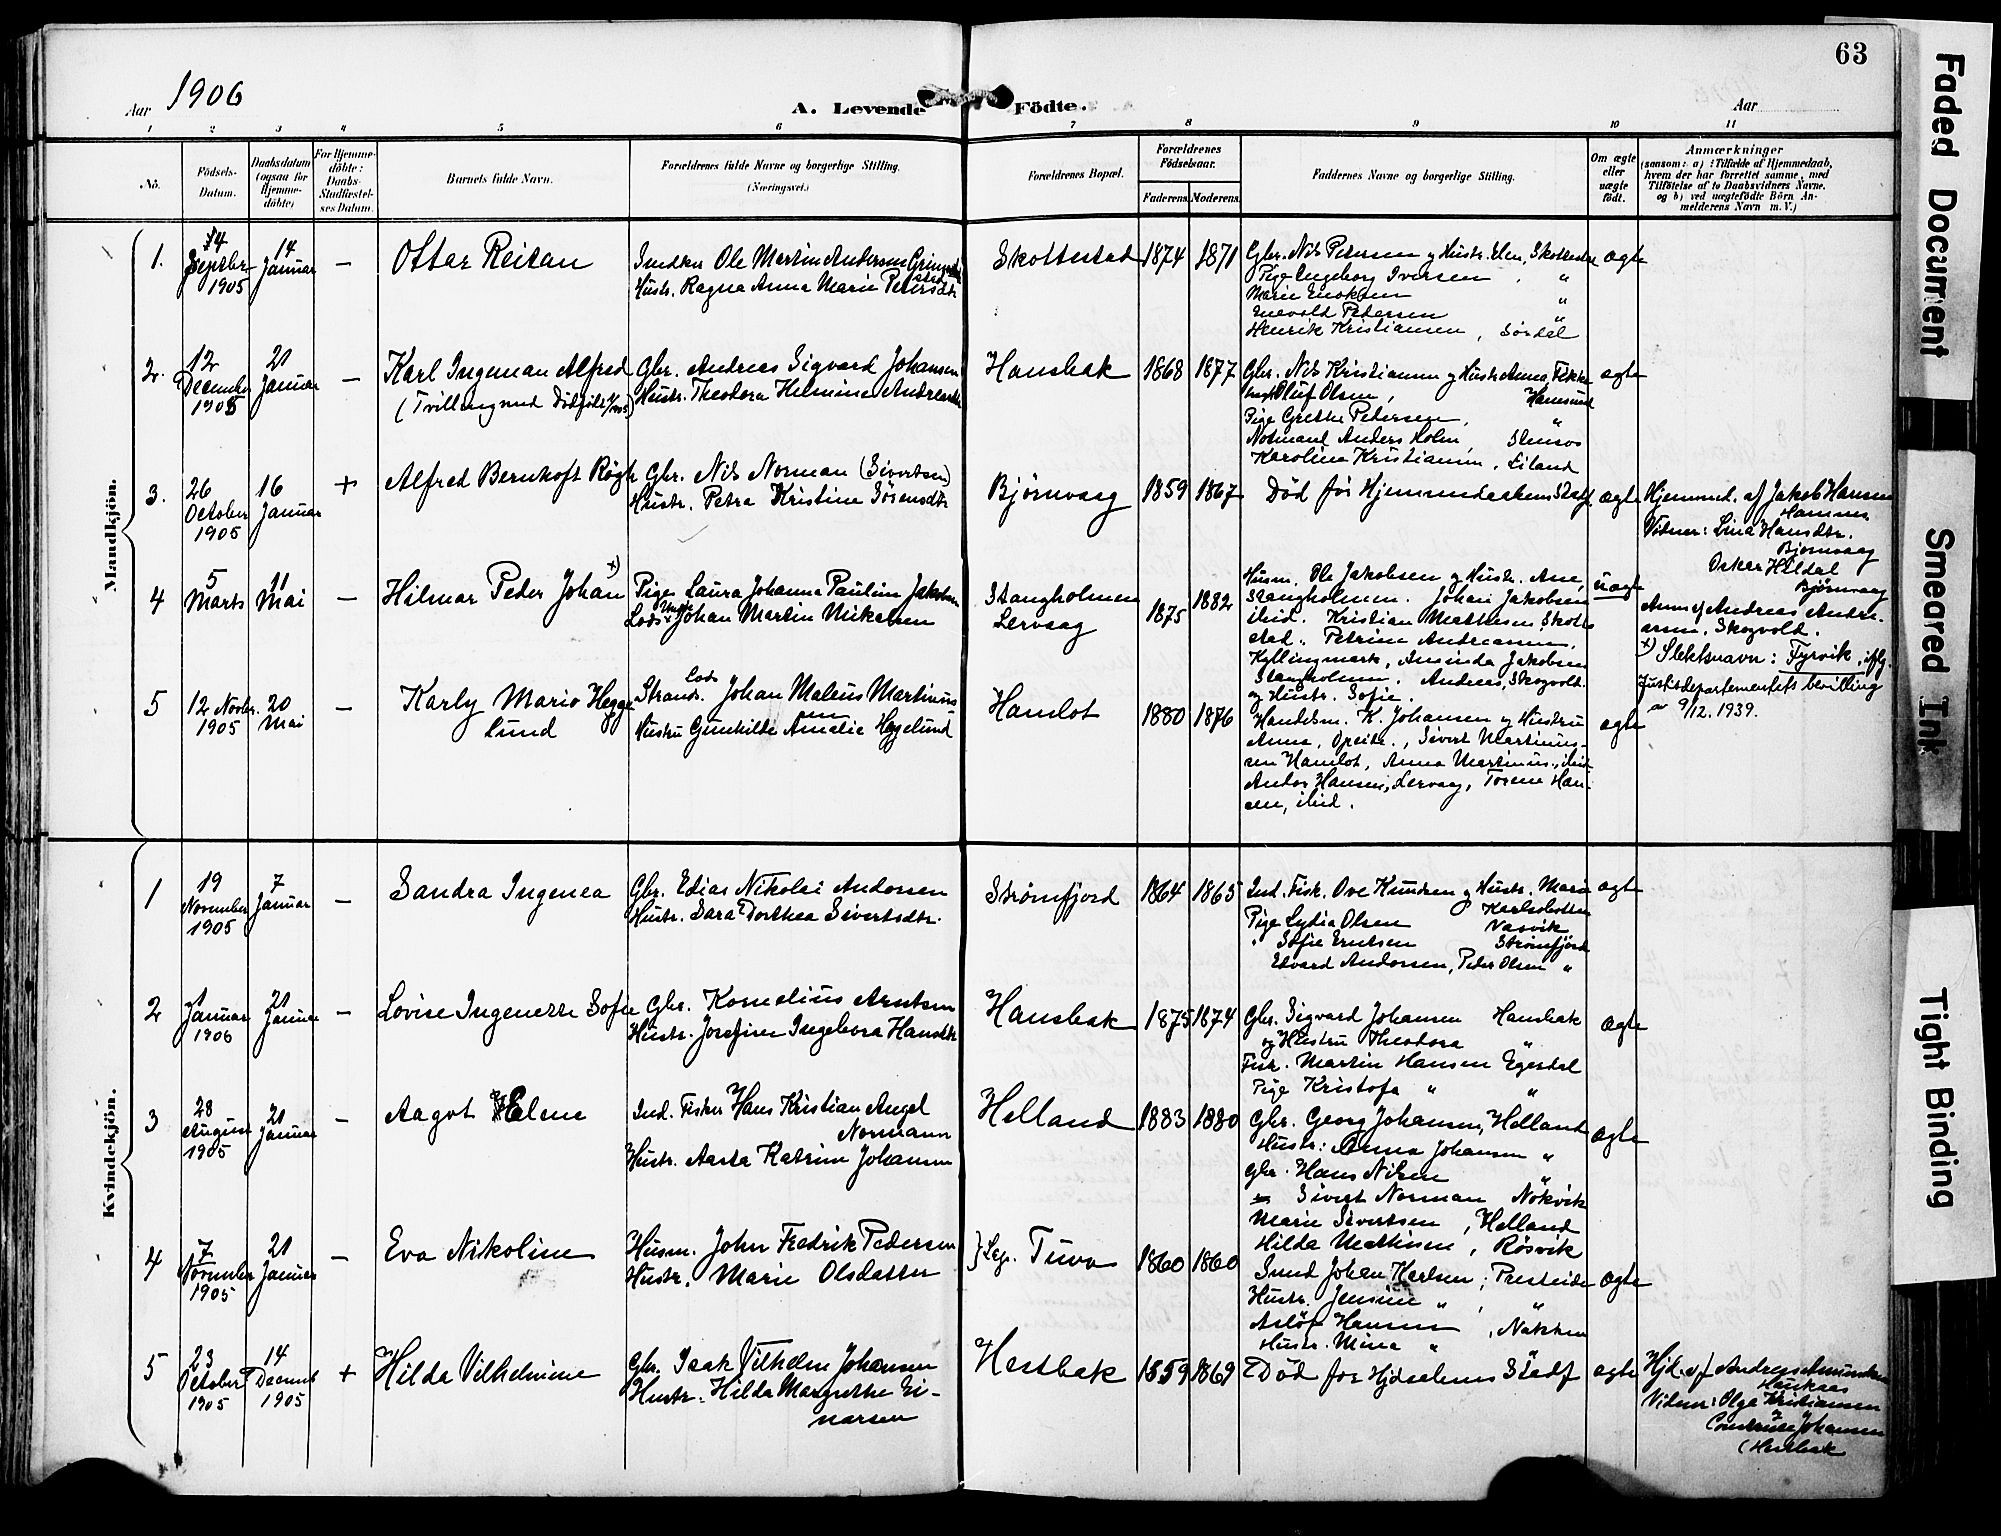 63
Aar 1906
A. Levende Födte.
Aar
1 2 3 4 5 6 7 8 9 10 11
No.
Födsels-Datum.
Daabsdatum (ogsaa for Hjemme-döbte)
For Hjemme-döbte: Daabs-Stadfæstel-ses Datum.
Barnets fulde Navn.
Forældrenes fulde Navne og borgerlige Stilling.
(Næringsvei.)
Forældrenes Bopæl.
Forældrenes Födselsaar.
Faderens. Moderens.
Faddernes Navne og borgerlige Stilling.
Om ægte eller uægte født.
Anmærkninger
(saasom: a) i Tilfælde af Hjemmedaab,
hvem der har forrettet samme, med
Tilföielse af to Daabsvidners Navne,
og b) ved uægtefødte Börn An-
melderens Navn m. V.)
Mandkjön.
1. 14 Septbr 1905 14 Januar – Ottar Reitan
Hustr. Ragna Anna Marie Petersdtr
Skottestad 1874 1871
Gbr. Nils Petersen og Hustr. Elen, Skottestad
Pige Ingeborg Iversen "
Marie Enoksen "
Enevold Pedersen "
Henrik Kristiansen, Sørdal
ægte
2. 12 December 1905 21 Januar – Karl Ingeman Alfred
Gbr. Andreas Sigvard Johansen
Hustr. Theodora Helmine Andreasdtr
Hansbak 1868 1877
Gbr. Nils Kristiansen og Hustr Anna,
Oluf Olsen, Hamsund
Pige Grethe Petersen, "
Anders Holm,
Karoline Kristiansen, Eiland
ægte
3. 26 October 1905 16 Januar + Alfred Bernhoft Røgh
Gbr. Nils Norman (Sivertsen)
Hustr. Petra Kristine Sörensdtr
Bjørnvaag 1859 1867
Død før Hjemmedaabens Stadf.
ægte
Hjemmed. af Jakob Hansen
Hamnes
Vidner: Lina Hansdtr.
Bjørnvaag
Oskar Hildal
Bjørnvaag
4 5 Marts 11 Mai – Hilmar Peder Johan x)
Pige Laura Johanna Pauline Jakobsen
Johan Martin Mikalsen
Stangholmen
Lervaag
1875 1882
Husm. Ole Jakobsen og Hustr. Ane,
Stangholmen. Johan Jakobsen
ibid. Kristian Mathisen Skotte-
stad. Petrine Andreasen,
Kyllingmark, Aminda Jakobsen
Stangholmen. Andreas, Skogvold.
og Hustr. Sofie.
uægte
Anm. af Andreas Andre-
asen, Skogvold.
x) Slektsnavn: Fyrvik, ifølg.
Justisdepartementets bevilling
av 9/12. 1939.
5 12 Novbr. 1905 20 Mai – Karly Mario Hegge-
lund
Johan Maleus Martinus-
sen
Hustru Gunhilde Amalie Hegelund
Hamlot 1880 1876
Handelsm. K. Johansen og Hustru
Anna, Opeide., Sivert Martinus-
sen Hamlot, Anna Martinus., ibid.
Andor Hansen, Lervaag, Torene Han-
sen, ibid.
ægte
Kvindekjön.
1 19 November 1905 7 Januar – Sandra Ingenea
Gbr. Edias Nikolai Andorsen
Hustr. Sara Dorthea Sivertsdtr.
Strømfjord 1864 1865
Ind. Fisk. Ove Knudsen og Hustr. Marie
Karlsbotten
Pige Lydia Olsen Vasvik
" Sofie Erntsen Strømfjord
Edvard Andorsen, Peder Olsen "
ægte
2 1 Januar 1906 21 Januar – Lovise Ingenette Sofie
Gbr. Kornelius Arntsen
Hustr. Josefine Ingebora Hansdtr
Hansbak 1875 1874
Gbr. Sigvard Johansen Hansbak
og Hustru Theodora "
Fisk. Martin Hansen Egerdal
Pige Kristofa " "
ægte
3 28 August 1905 21 Januar – Aagot Elene
Ind. Fisker Hans Kristian Angel
Normann
Hustr. Aasta Katrine Johansen
Helland 1883 1880
Gbr. Georg Johansen, Helland
Hustr: Anna Johansen "
Gbr. Hans Nilsen "
Sivert Norman Nökvik
Marie Sivertsen, Helland
Hilda Mathisen, Røsvik
ægte
4 7 November 1905 21 Januar – Eva Nikoline
Husm. John Fredrik Pedersen
Hustr. Marie Olsdatter
} Leg. Tuva 1860 1860
Johan Karlsen, Presteide
Hustr. Jensine " , "
Asløf Hansen, Nakken
Hustr. Mina " "
ægte
5 23 October 1905 14 Decemb 1905 + Hilda Vilhelmine
Gbr. Isak Vilhelm Johansen
Hustr. Hilda Margrethe Ei-
narsen
Hestbak 1859 1869
Død før Hjdaabens Stadf
ægte
Hjd. af Andreas Amundsen
Haukaas
Vidner: Olga Kristiansen
og Johansen
(Hestbak
Faded Document
Smeared Ink
Tight Binding